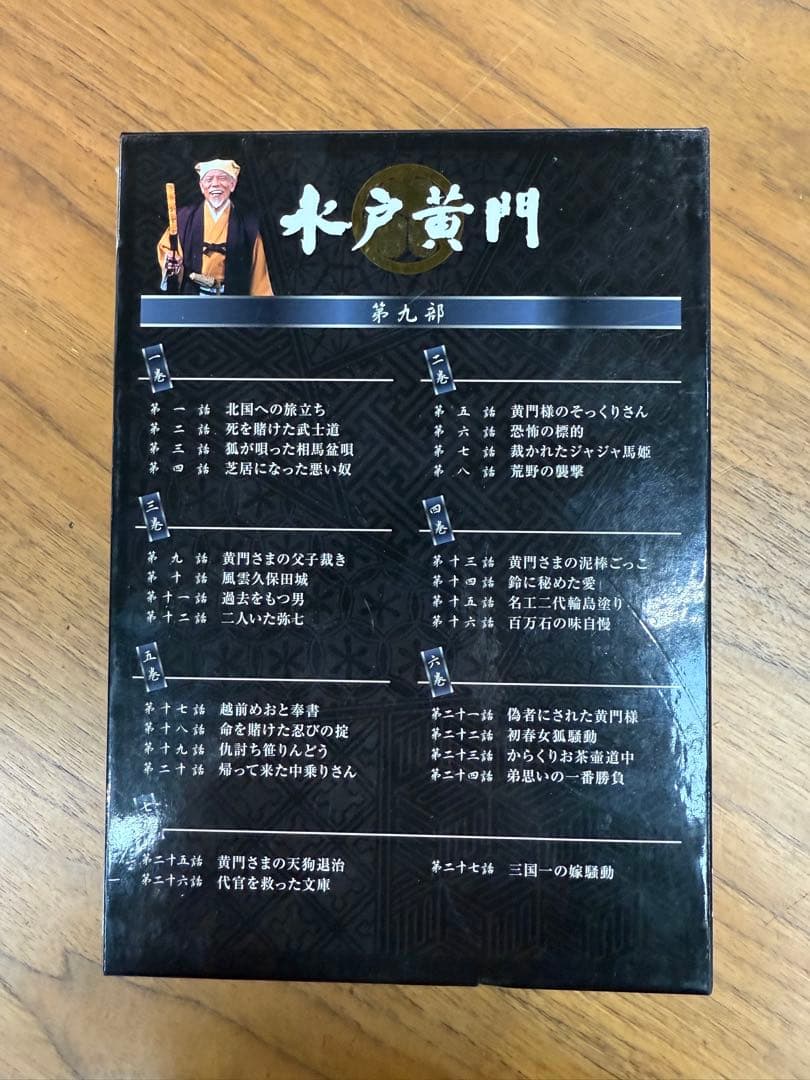 水戸黄門
第九部
一巻
第一話 北国への旅立ち
第二話 死を賭けた武士道
第三話 狐が唄った相馬盆唄
第四話 芝居になった悪い奴
二巻
第五話 黄門様のそっくりさん
第六話 恐怖の標的
第七話 裁かれたジャジャ馬姫
第八話 荒野の襲撃
三巻
第九話 黄門さまの父子裁き
第十話 風雲久保田城
第十一話 過去をもつ男
第十二話 二人いた弥七
四巻
第十三話 黄門さまの泥棒ごっこ
第十四話 鈴に秘めた愛
第十五話 名工二代輪島塗り
第十六話 百万石の味自慢
五巻
第十七話 越前めおと奉書
第十八話 命を賭けた忍びの掟
第十九話 仇討ち笹りんどう
第二十話 帰って来た中乗りさん
六巻
第二十一話 偽者にされた黄門様
第二十二話 初春女狐騒動
第二十三話 からくりお茶壷道中
第二十四話 弟思いの一番勝負
七
第二十五話 黄門さまの天狗退治
第二十六話 代官を救った文庫
第二十七話 三国一の嫁騒動